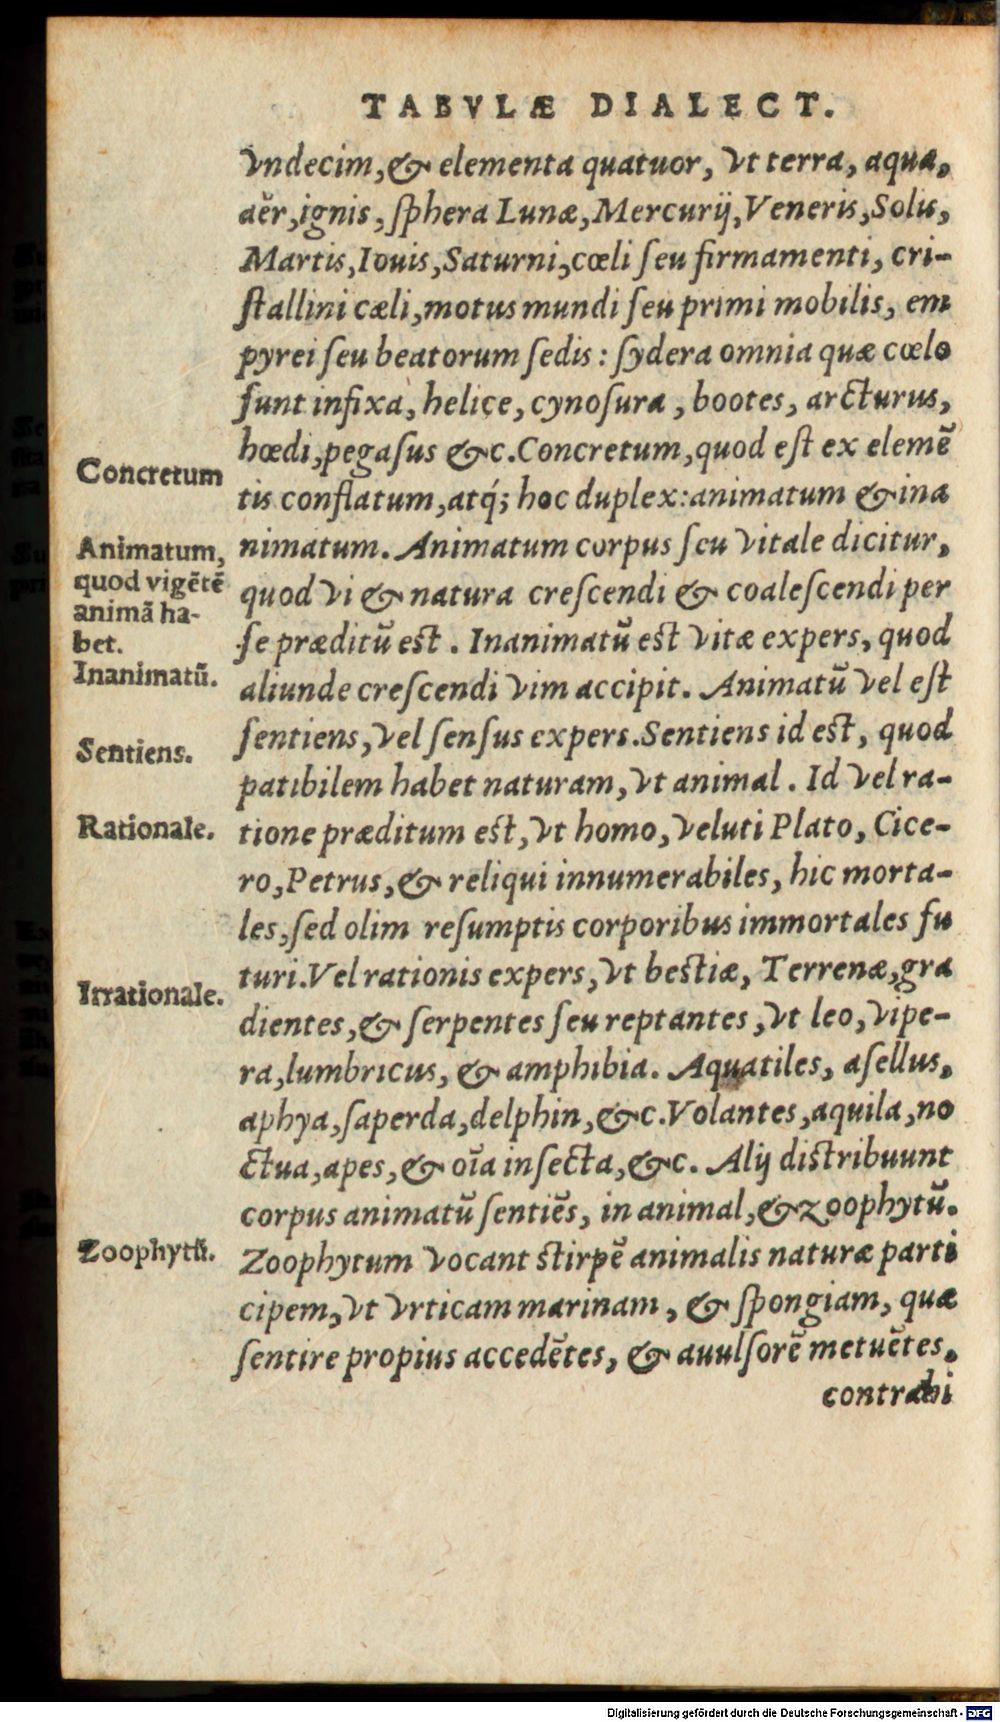 TABVLÆ DIALECT.
vndecim, & elementa quatuor, vt terra, aqua,
aër, ignis, sphera Lunæ, Mercurij, Veneris, Solis,
Martis, Iouis, Saturni, cœli seu firmamenti, cri-
stallini cæli, motus mundi seu primi mobilis, em
pyrei seu beatorum sedis: sydera omnia quæ cœlo
sunt infixa, helice, cynosura, bootes, arcturus,
hœdi, pegasus &c. Concretum, quod est ex elemẽ
Concretum
tis conflatum, atq́; hoc duplex: animatum & ina
nimatum. Animatum corpus seu vitale dicitur,
Animatum,
quod vigẽtẽ
animã ha-
bet.
quod vi & natura crescendi & coalescendi per
se præditũ est. Inanimatũ est vitæ expers, quod
Inanimatũ.
aliunde crescendi vim accipit. Animatũ vel est
sentiens, vel sensus expers. Sentiens id est, quod
Sentiens.
patibilem habet naturam, vt animal. Id vel ra-
tione præditum est, vt homo, veluti Plato, Cice-
Rationale.
ro, Petrus, & reliqui innumerabiles, hic morta-
les, sed olim resumptis corporibus immortales fu
turi. Vel rationis expers, vt bestiæ, Terrenæ, gra
Irrationale.
dientes, & serpentes seu reptantes, vt leo, vipe-
ra, lumbricus, & amphibia. Aquatiles, asellus,
aphya, saperda, delphin, &c. Volantes, aquila, no
ctua, apes, & oĩa insecta, &c. Alij distribuunt
corpus animatũ sentiẽs, in animal, & zoophytũ.
Zoophytũ.
Zoophytum vocant stirpẽ animalis naturæ parti
cipem, vt vrticam marinam, & spongiam, quæ
sentire propius accedẽtes, & auulsorẽ metuẽtes,
contrahi
Digitalisierung gefördert durch die Deutsche Forschungsgemeinschaft - DFG